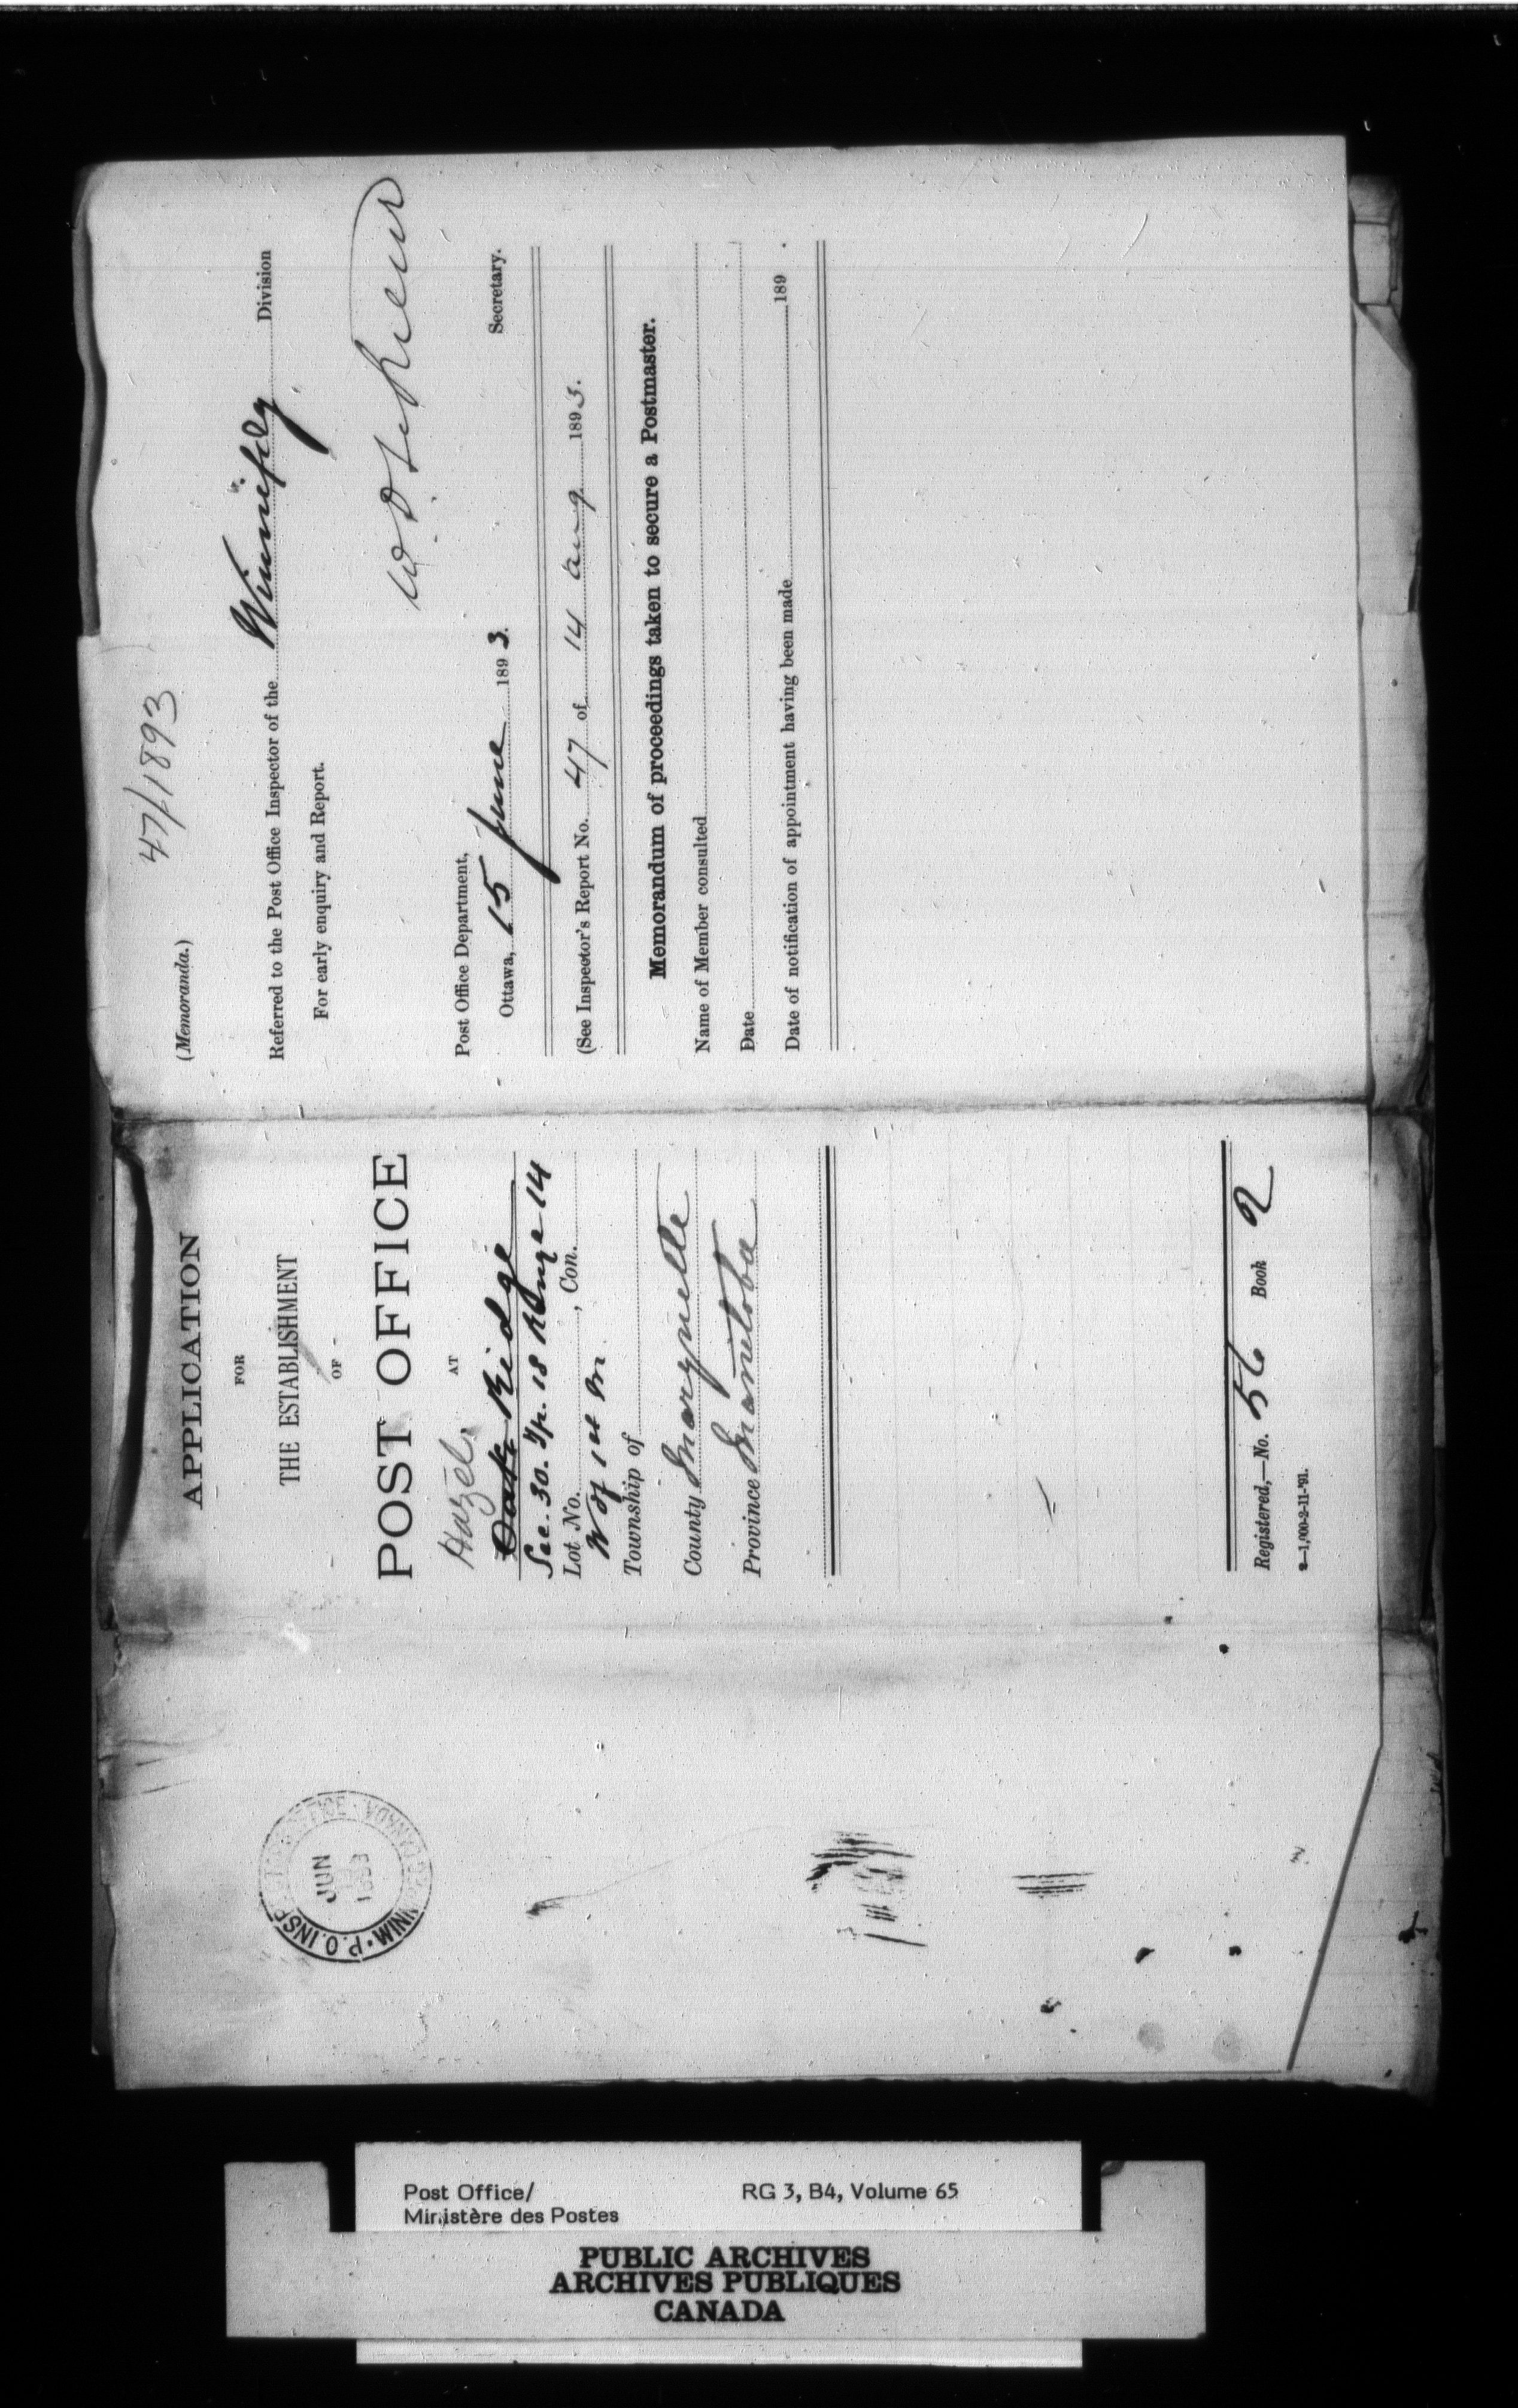 APPLICATION
FOR
THE ESTABLISHMENT
OF
POST OFFICE
AT
Hazel
Oak Ridge
Sec. 30. Tp. 18 Range 14
Lot No. , Con.
W of 1st M
Township of
County Marquette
Province Manitoba
Registered,—No. 56 Book 2
2—1,000-2-11-'91.
47/1893
(Memoranda.)
Referred to the Post Office Inspector of the Winnipeg Division
For early enquiry and Report.
Secretary.
Post Office Department,
Ottawa, 15 June 1893.
(See Inspector's Report No. 47 of 14 Aug 1893.
Memorandum of proceedings taken to secure a Postmaster.
Name of Member consulted
Date
Date of notification of appointment having been made 189 .
P.O. INSP
JUN
1893
Post Office/ RG 3, B4, Volume 65
Ministère des Postes
PUBLIC ARCHIVES
ARCHIVES PUBLIQUES
CANADA